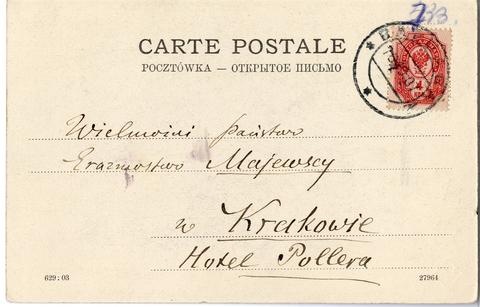 233.
CARTE POSTALE
POCZTÓWKA — ОТКРЫТОЕ ПИСЬМО
Wielmożni Państwo
Erazmostwo Majewscy
w Krakowie
Hotel Pollera
629:03
27964